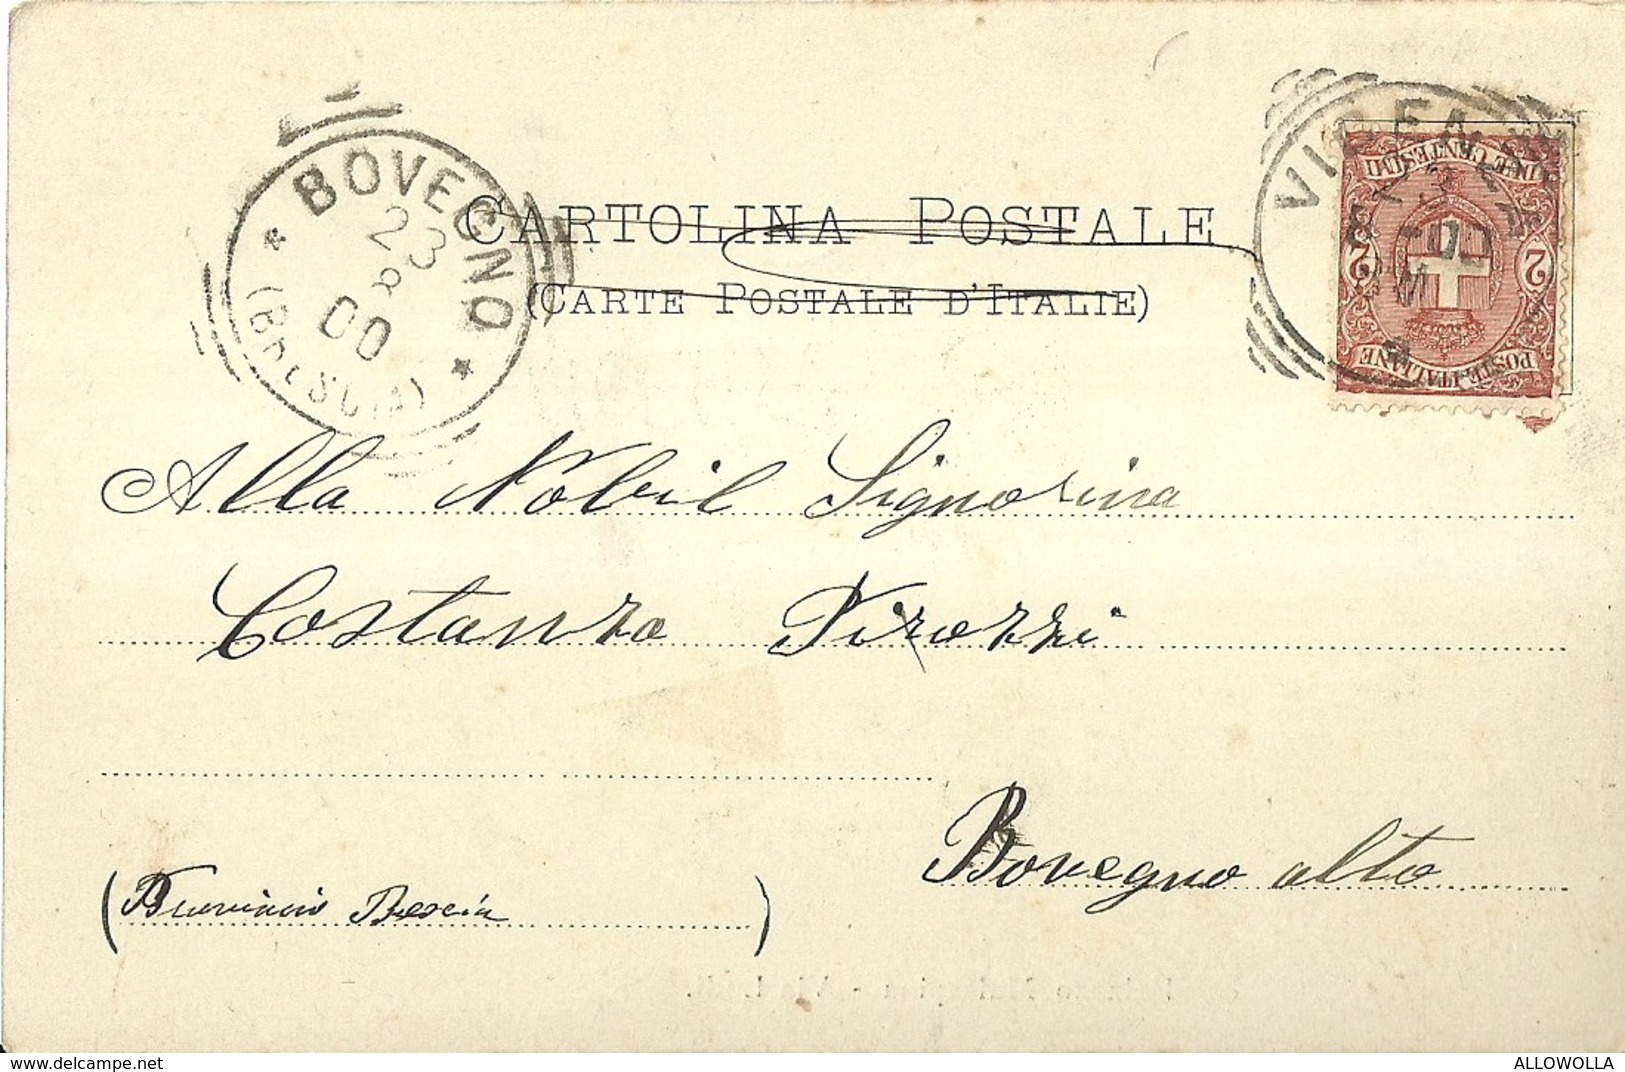 BOVEGNO
23
00
(BRESCIA)
CARTOLINA POSTALE
(CARTE POSTALE D'ITALIE)
POSTE ITALIANE
2 2
DUE CENTESIMI
Alla Nobil Signorina
Costanza
Bovegno alto
(Provincia Brescia)
www.delcampe.net
ALLOWOLLA